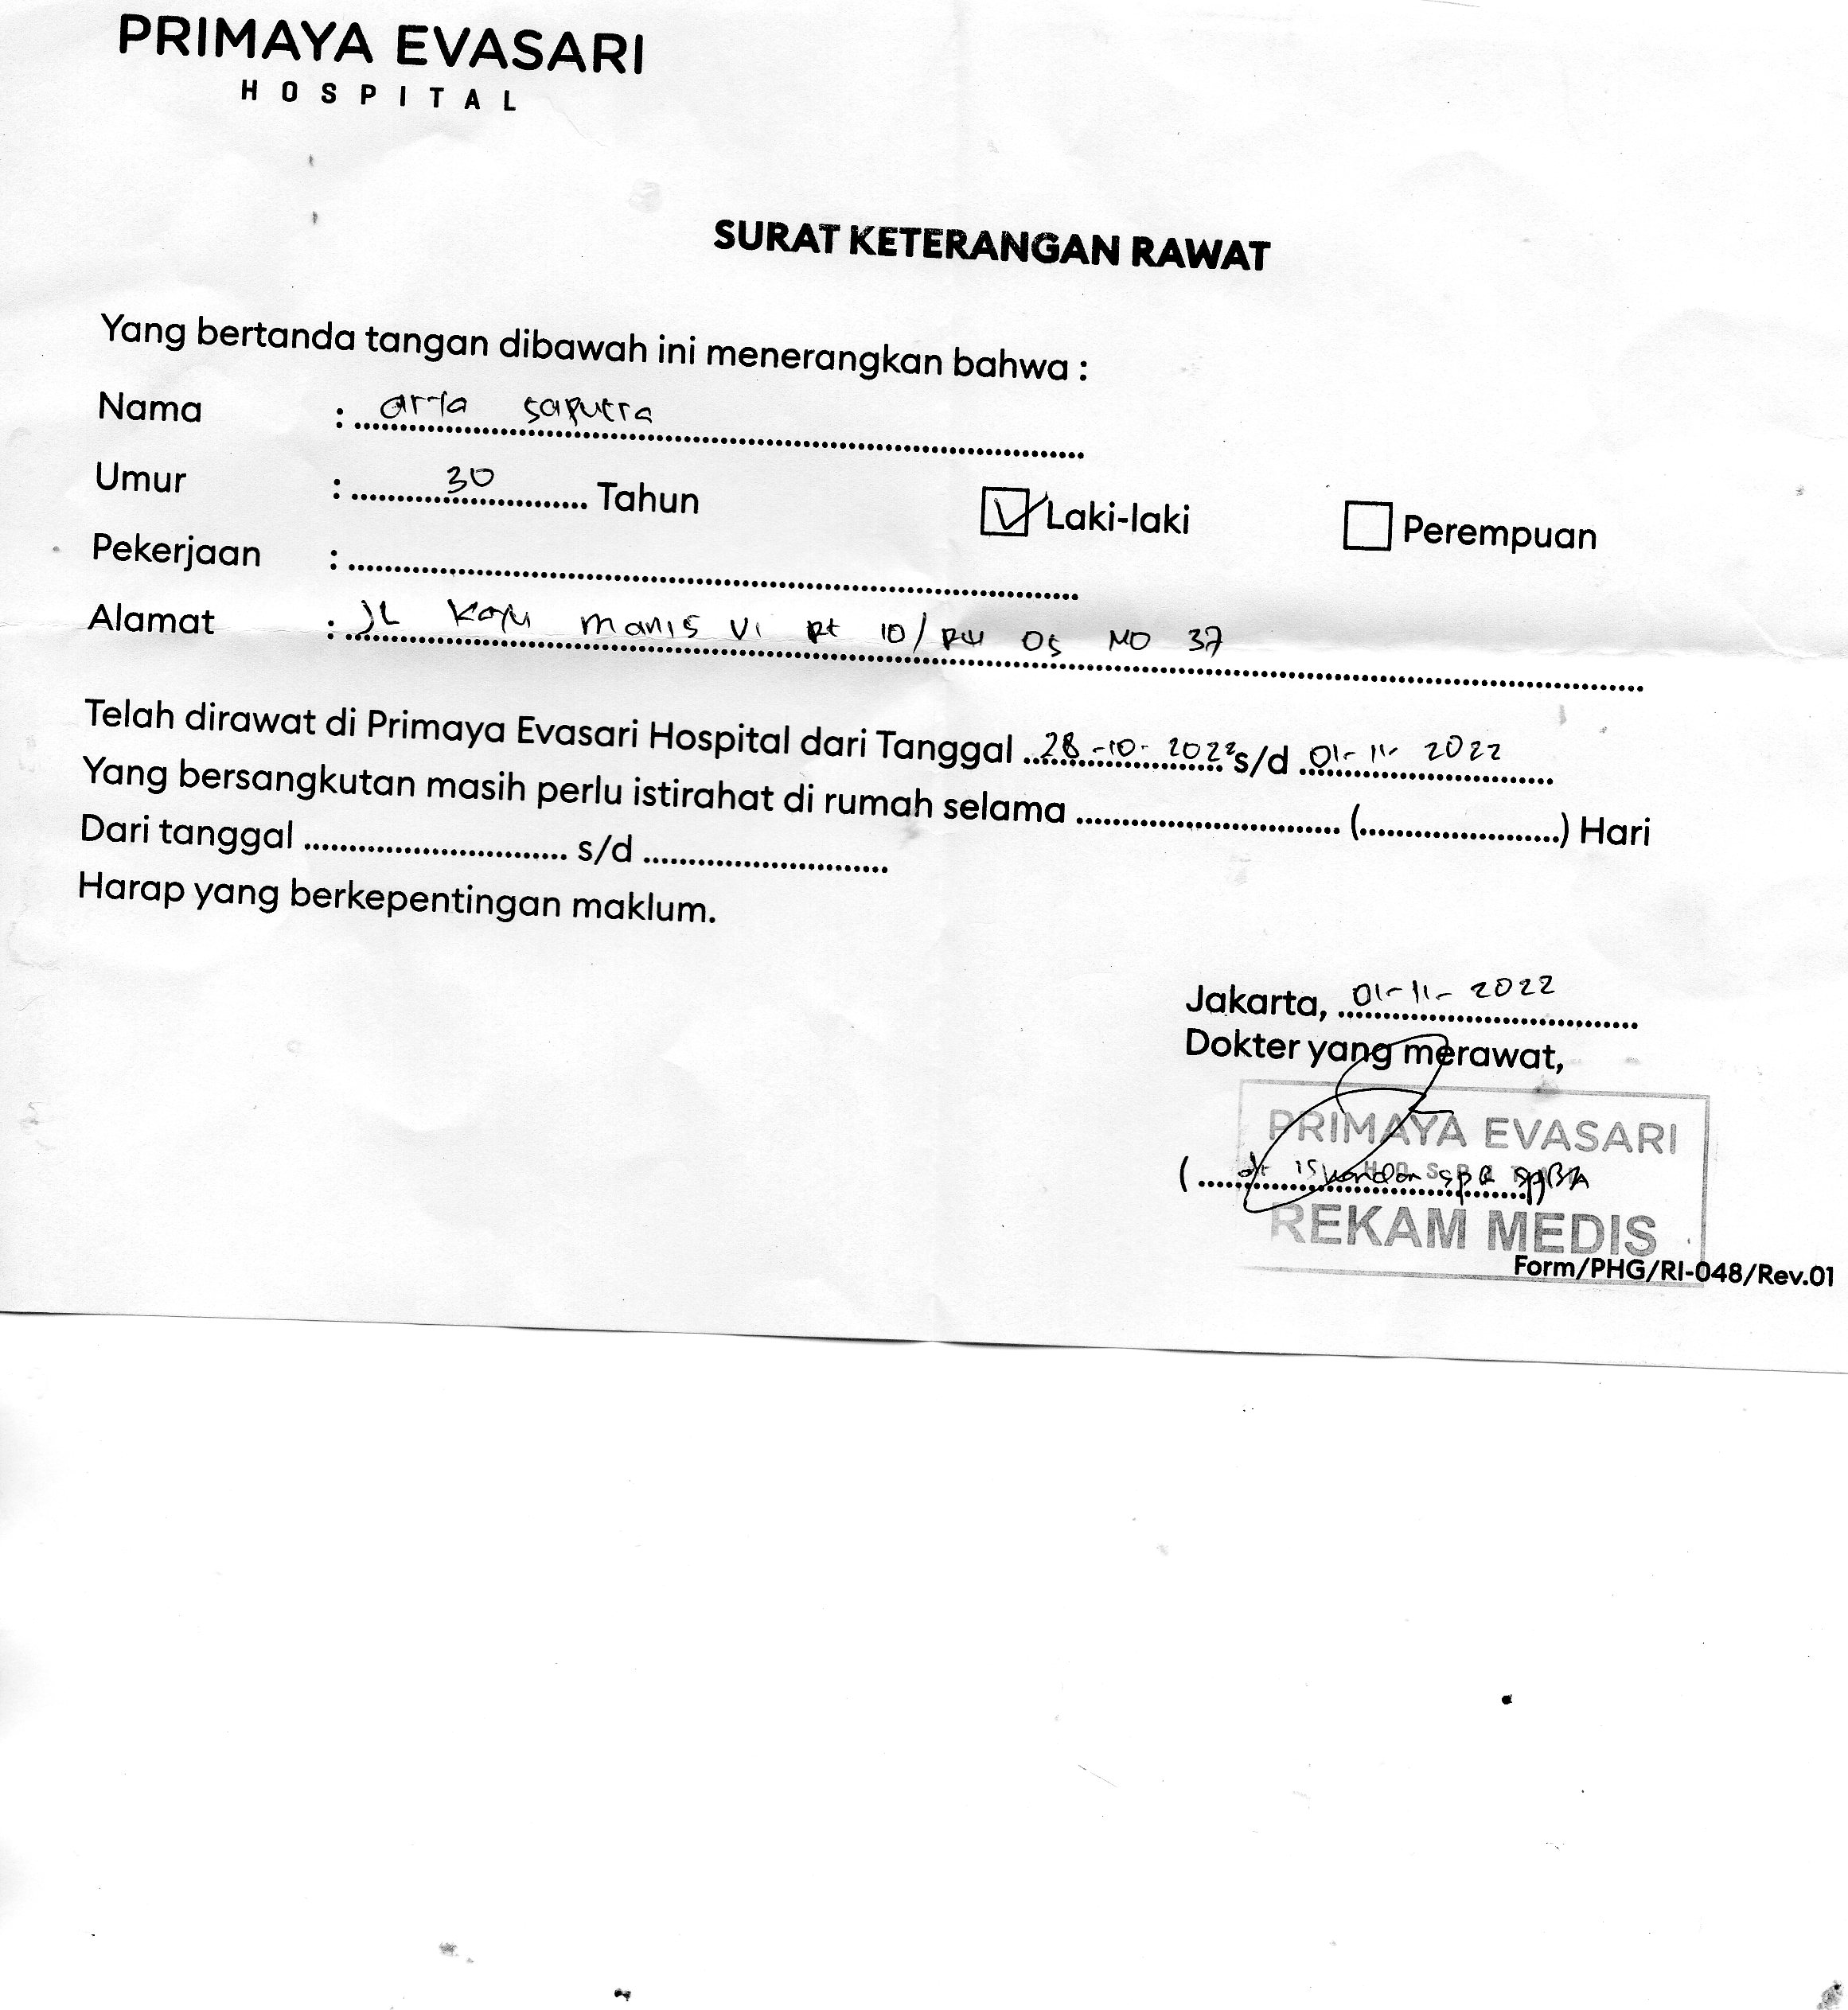 PRIMAYA EVASARI
HOSPITAL
SURAT KETERANGAN RAWAT
Yang bertanda tangan dibawah ini menerangkan bahwa :
Nama : arta saputra
Umur : 30 Tahun Laki-laki Perempuan
Pekerjaan :
Alamat : JL Kayu manis VI Rt 10/RW 05 NO 37
Telah dirawat di Primaya Evasari Hospital dari Tanggal 28-10-2022 s/d 01-11-2022
Yang bersangkutan masih perlu istirahat di rumah selama (....................) Hari
Dari tanggal s/d
Harap yang berkepentingan maklum.
Jakarta, 01-11-2022
Dokter yang merawat,
PRIMAYA EVASARI
HOSPITAL
(dr iskandar spB)
REKAM MEDIS
Form/PHG/RI-048/Rev.01